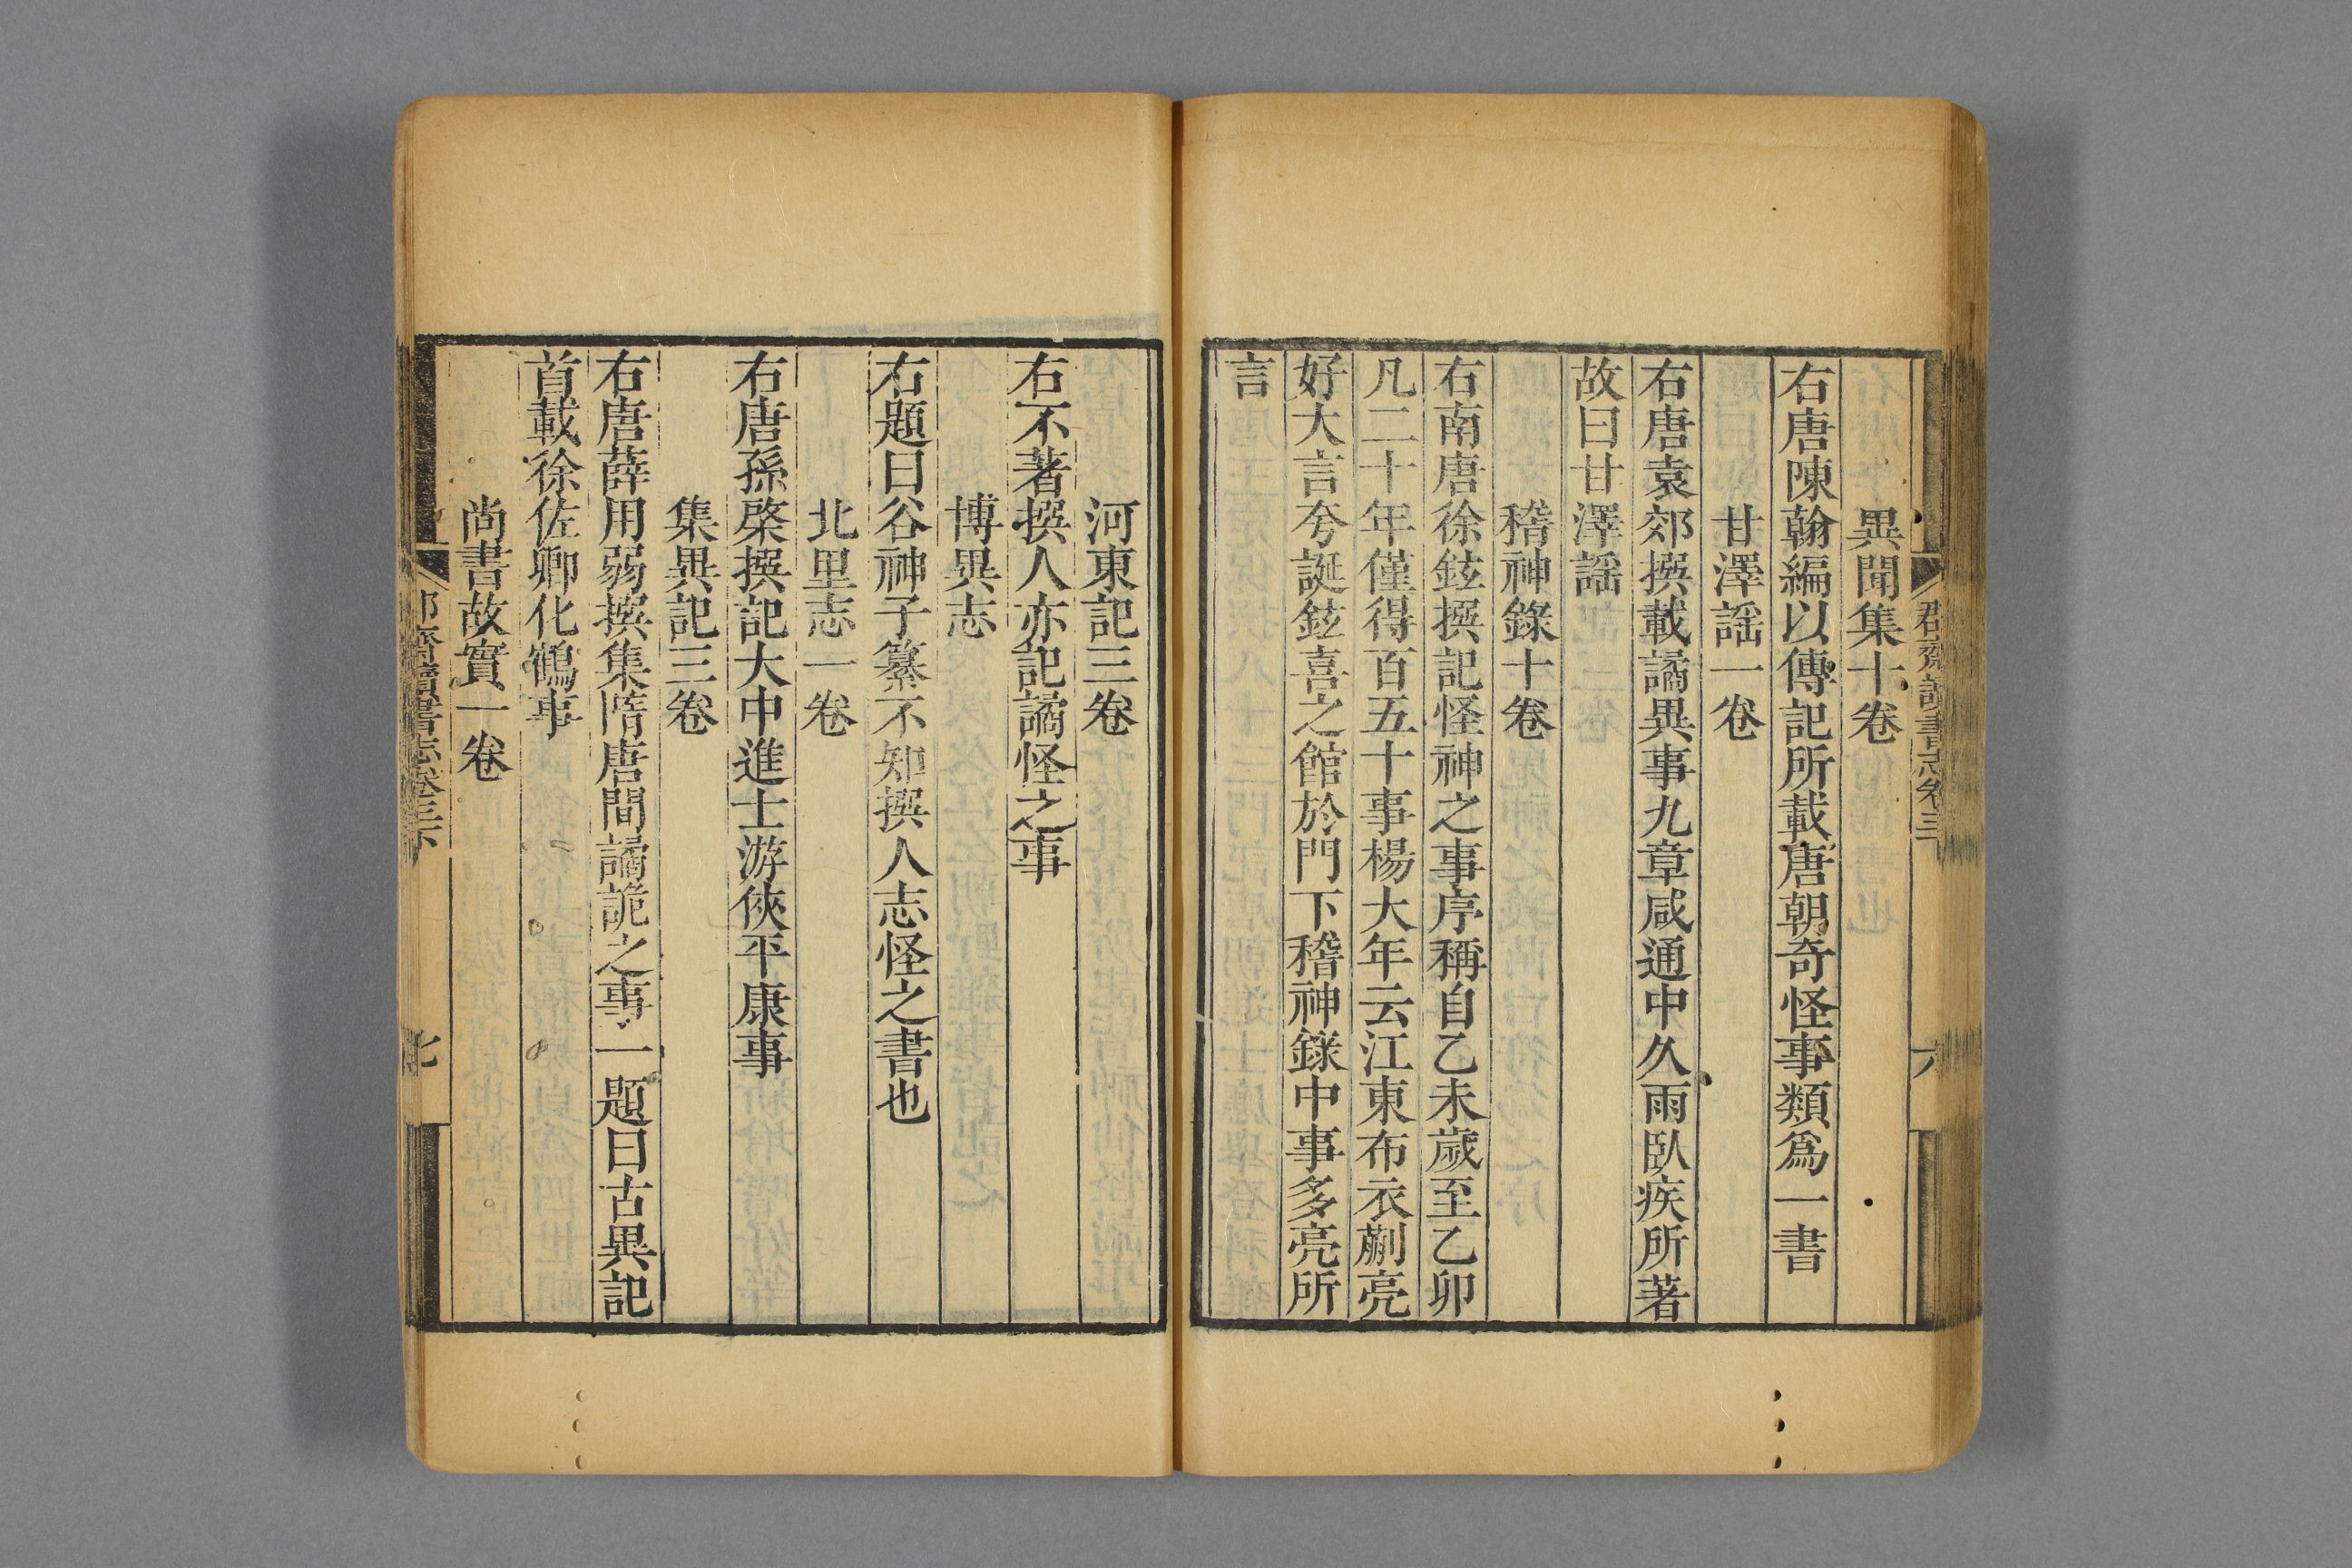 異聞集十卷
右唐陳翰編以傳記所載唐朝奇怪事類爲一書
甘澤謡一卷
右唐袁郊撰載譎異事九章咸通中久雨臥疾所著
故曰甘澤謡
稽神錄十卷
右南唐徐鉉撰記怪神之事序稱自乙未歲至乙卯
凡二十年僅得百五十事楊大年云江東布衣蒯亮
好大言夸誕鉉喜之館於門下稽神錄中事多亮所
言
河東記三卷
右不著撰人亦記譎怪之事
博異志
右題曰谷神子纂不知撰人志怪之書也
北里志一卷
右唐孫棨撰記大中進士游俠平康事
集異記三卷
右唐薛用弱撰集隋唐間譎詭之事一題曰古異記
首載徐佐卿化鶴事
尚書故實一卷